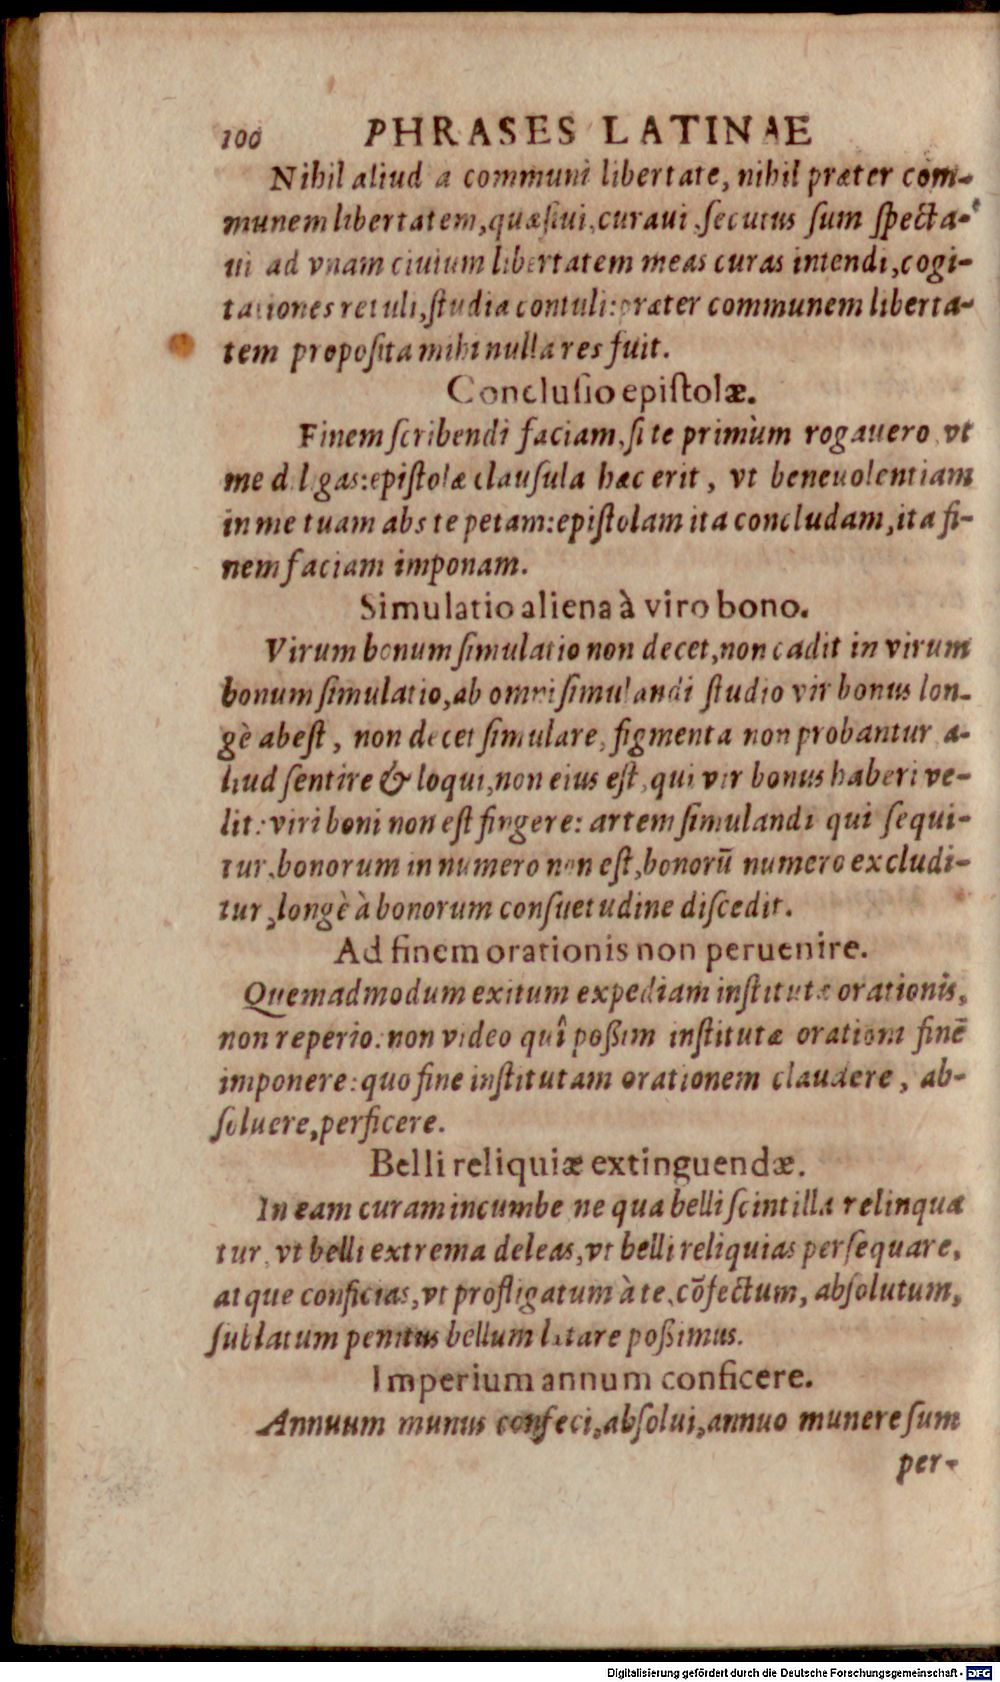 100 PHRASES LATINAE
Nihil aliud a communi libertate, nihil præter com-
munem libertatem, quæsiui, curaui, secutus sum specta-
ui ad vnam ciuium libertatem meas curas intendi, cogi-
tationes retuli, studia contuli: præter communem liberta-
tem proposita mihi nulla res fuit.
Conclusio epistolæ.
Finem scribendi faciam, si te primùm rogauero vt
me diligas: epistolæ clausula hæc erit, vt beneuolentiam
in me tuam abs te petam: epistolam ita concludam, ita fi-
nem faciam imponam.
Simulatio aliena à viro bono.
Virum bonum simulatio non decet, non cadit in virum
bonum simulatio, ab omni simulandi studio vir bonus lon-
gè abest, non decet simulare, figmenta non probantur a-
liud sentire & loqui, non eius est, qui vir bonus haberi ve-
lit: viri boni non est fingere: artem simulandi qui sequi-
tur, bonorum in numero non est, bonorū numero excludi-
tur, longè à bonorum consuetudine discedit.
Ad finem orationis non peruenire.
Quemadmodum exitum expediam institutæ orationis,
non reperio: non video quî poßim institutæ orationi finē
imponere: quo fine institutam orationem claudere, ab-
soluere, perficere.
Belli reliquiæ extinguendæ.
In eam curam incumbe ne qua belli scintilla relinqua
tur, vt belli extrema deleas, vt belli reliquias persequare,
atque conficias, vt profligatum à te, cōfectum, absolutum,
sublatum penitus bellum lætare poßimus.
Imperium annum conficere.
Annuum munus confeci, absolui, annuo munere sum
per-
Digitalisierung gefördert durch die Deutsche Forschungsgemeinschaft - DFG